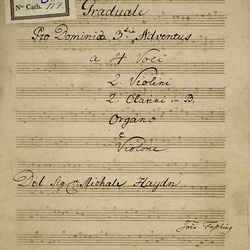 Nro Cath.
Graduale
Pro Dominica 3tia Adventus
a 4 Voci
2 Violini
2 Clarini in B.
Organo
e
Violone
Del Sig: Michale Haydn